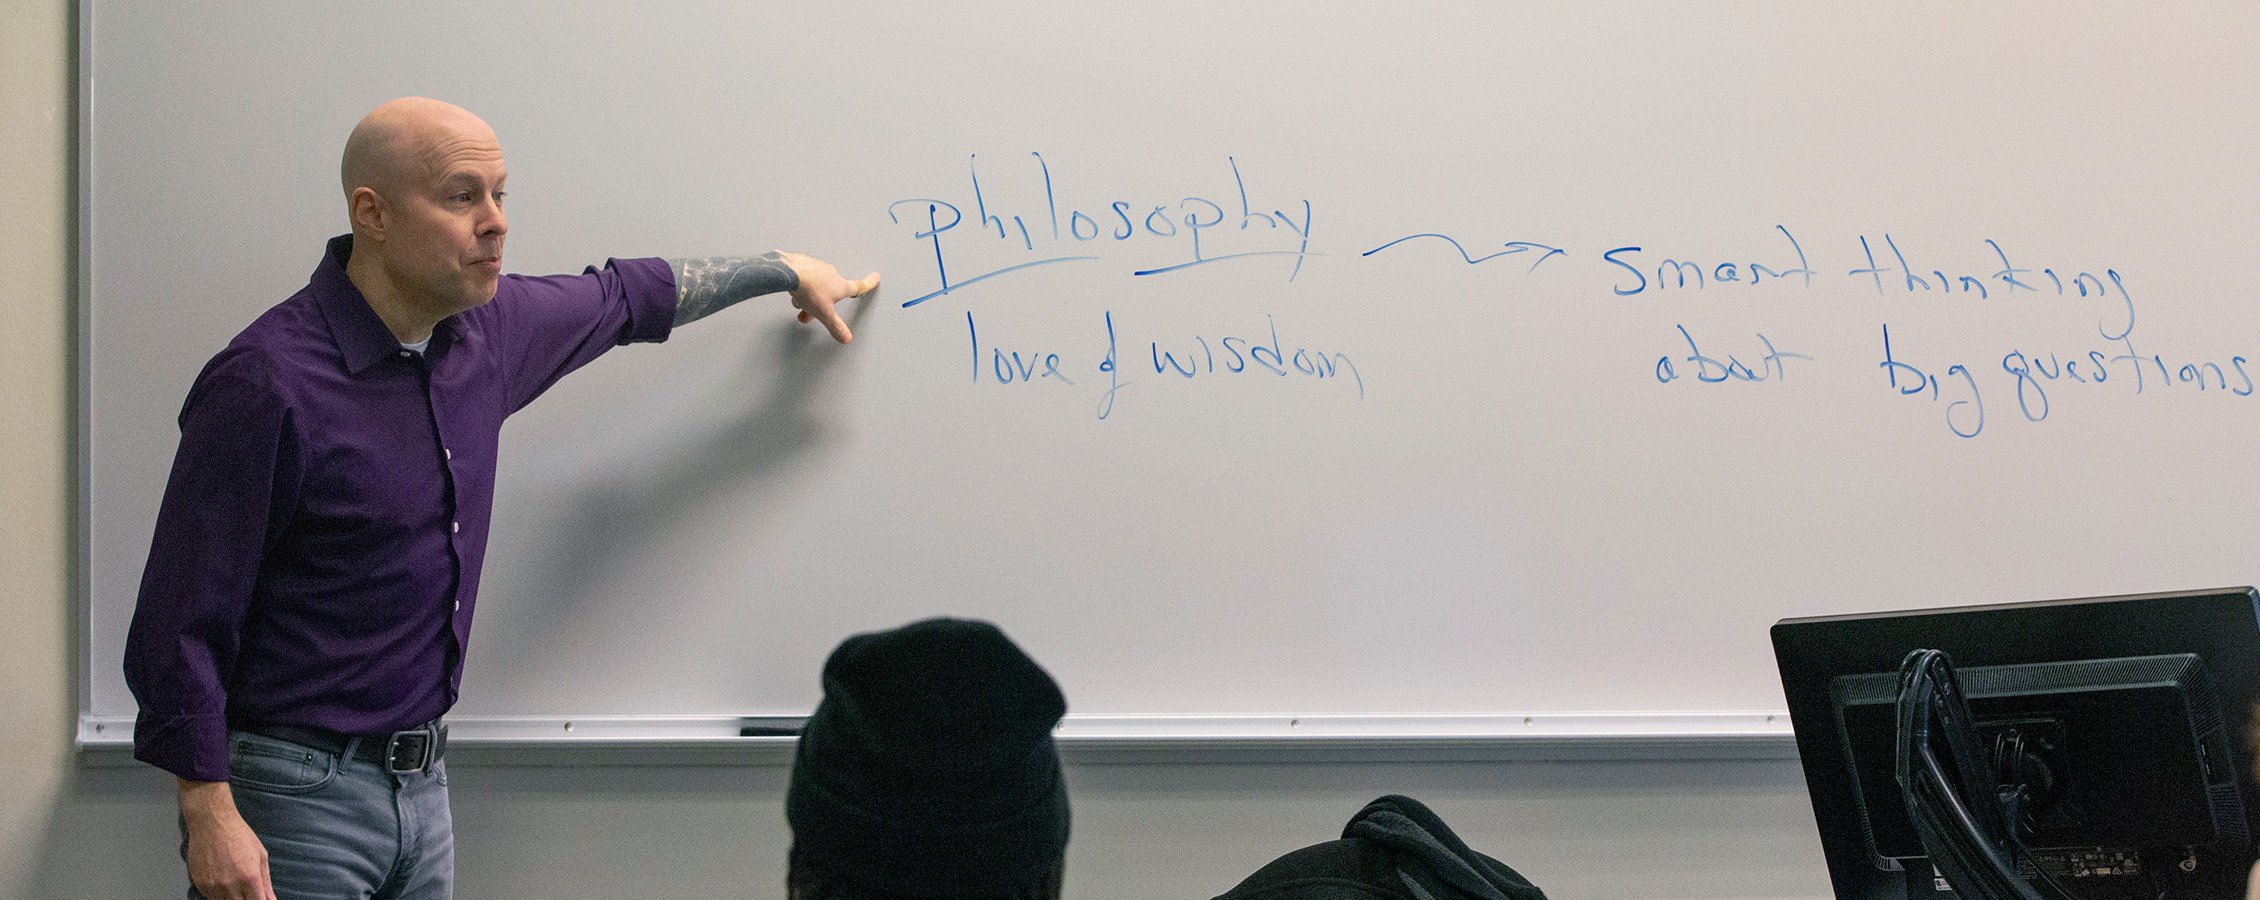 philosophy
love of wisdom
smart thinking
about big questions